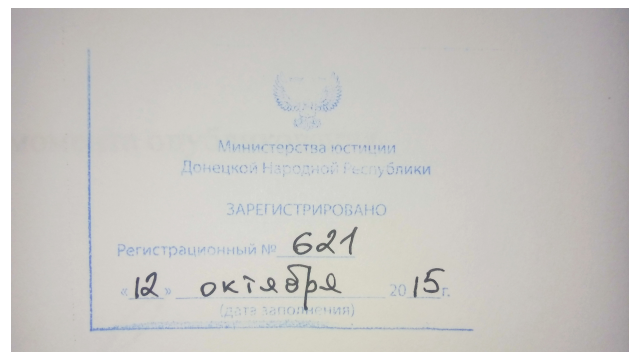 Министерства юстиции
Донецкой Народной Республики
ЗАРЕГИСТРИРОВАНО
Регистрационный № 621
«12» октября 2015 г.
(дата заполнения)